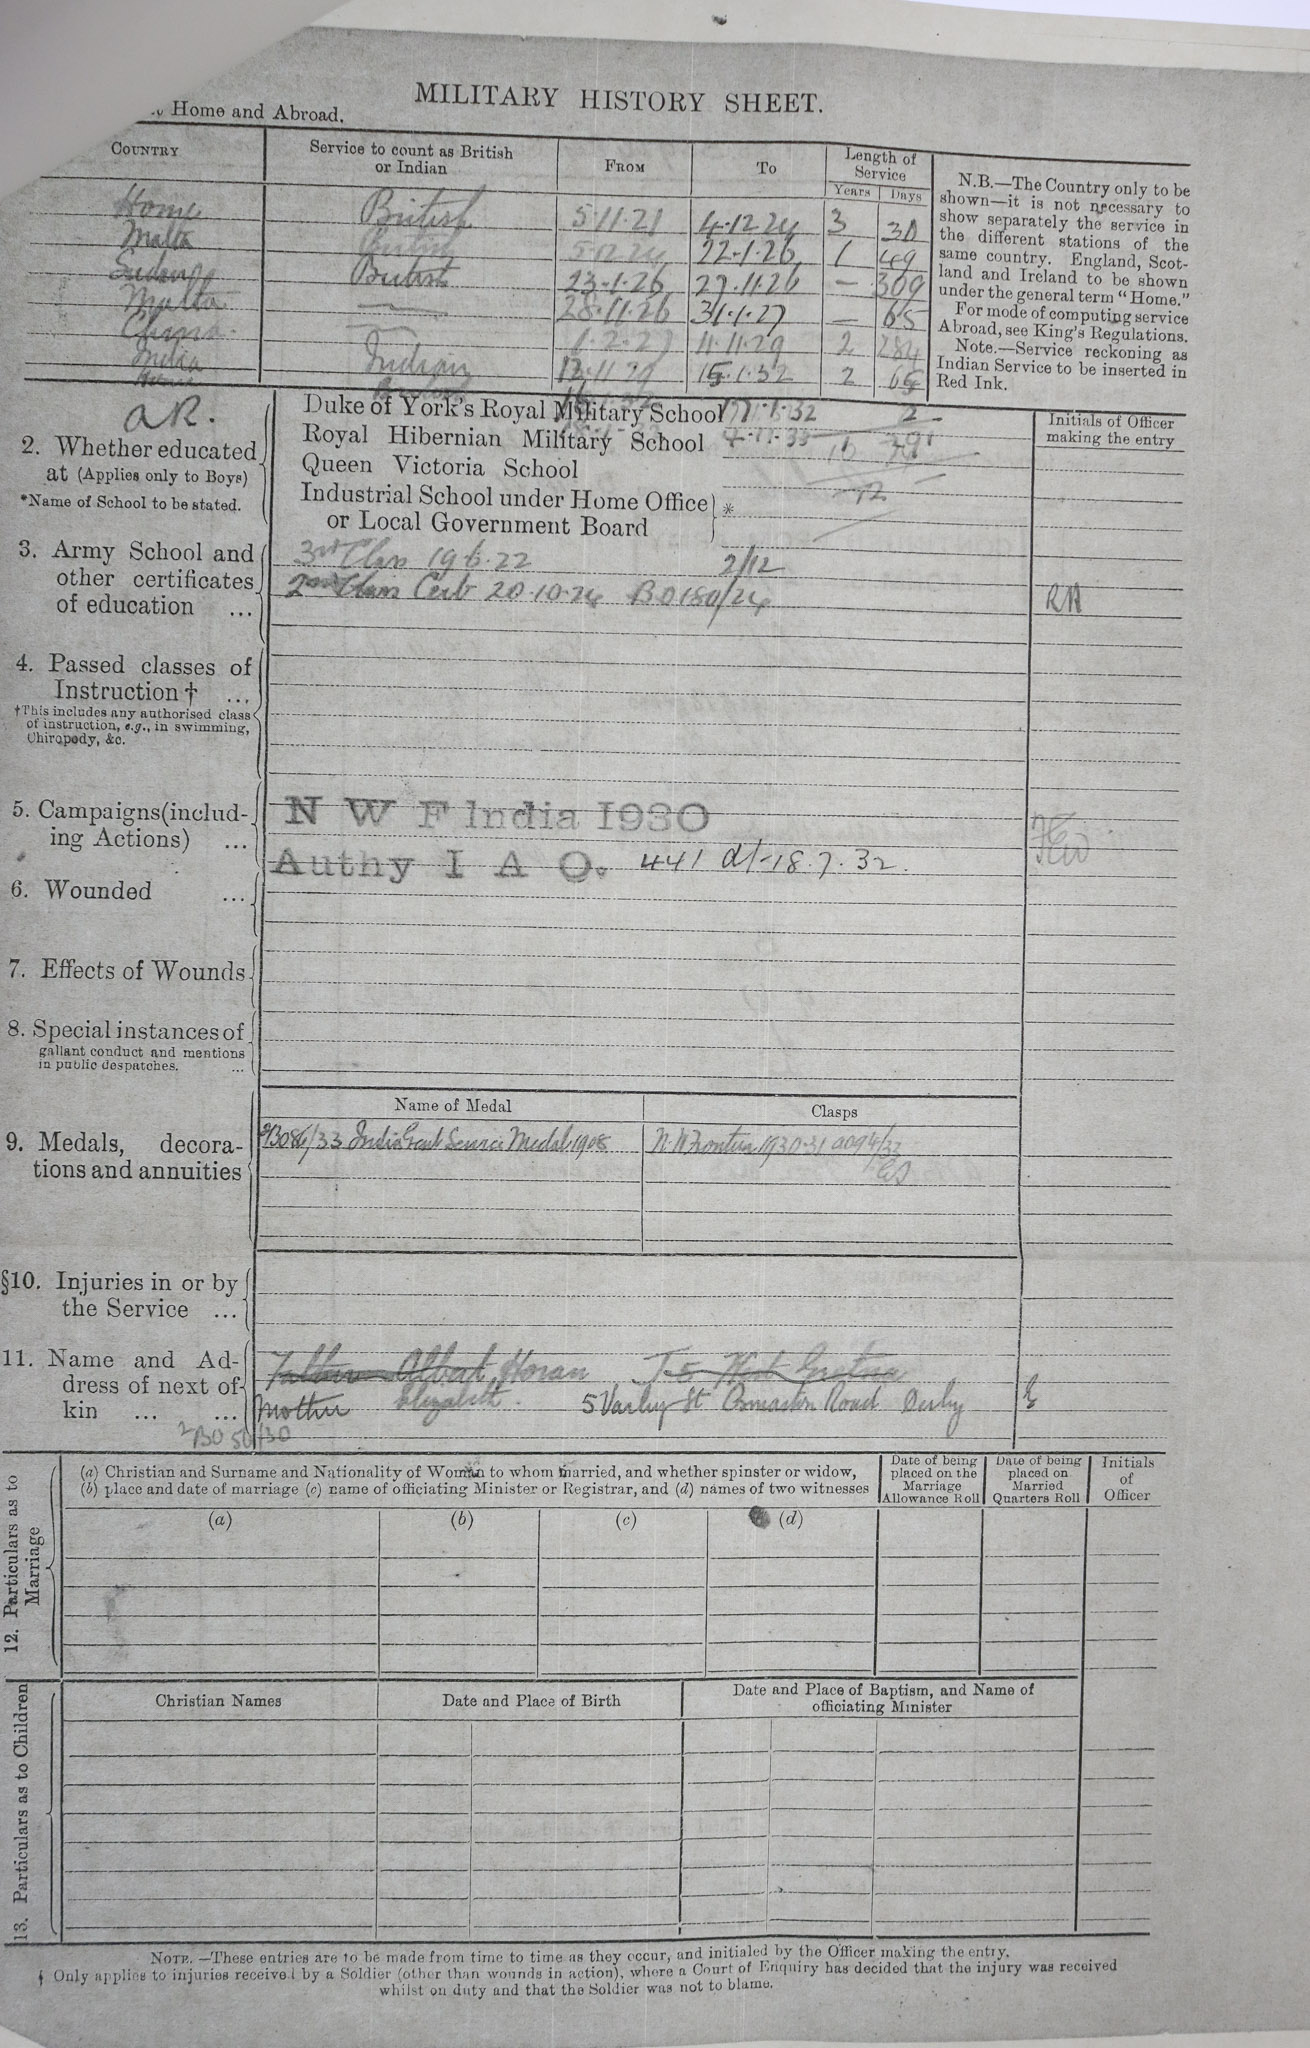 MILITARY HISTORY SHEET.
Home and Abroad.
COUNTRY
Service to count as British or Indian
FROM
To
Length of Service
Years Days
Home British 5.11.21 4.12.24 3 30
Malta British 5.12.24 22.1.26 1 49
Sudan British 23.1.26 27.11.26 — 309
Malta — 28.11.26 31.1.27 — 65
China — 1.2.27 11.11.29 2 284
India Indian 12.11.29 15.1.32 2 65
Home 17.1.32 2
N.B.—The Country only to be
shown—it is not necessary to
show separately the service in
the different stations of the
same country. England, Scot-
land and Ireland to be shown
under the general term "Home."
For mode of computing service
Abroad, see King's Regulations.
Note.—Service reckoning as
Indian Service to be inserted in
Red Ink.
AR.
2. Whether educated
at (Applies only to Boys)
*Name of School to be stated.
Duke of York's Royal Military School
Royal Hibernian Military School
Queen Victoria School
Industrial School under Home Office
or Local Government Board
*
Initials of Officer
making the entry
3. Army School and
other certificates
of education ...
3rd Class 19.6.22 2/12
2nd Class Cert 20.10.24 BO180/24 RH
4. Passed classes of
Instruction † ...
†This includes any authorised class
of instruction, e.g., in swimming,
Chiropody, &c.
5. Campaigns (includ-
ing Actions) ...
N W F India 1930
Authy I A O. 441 d/-18.7.32.
6. Wounded ...
7. Effects of Wounds
8. Special instances of
gallant conduct and mentions
in public despatches. ...
Name of Medal
Clasps
9. Medals, decora-
tions and annuities
India Genl Service Medal 1908
N.W. Frontier 1930-31
§10. Injuries in or by
the Service ...
11. Name and Ad-
dress of next of
kin ... ...
Father Albert Horan
Mother Elizabeth. 5 Varley St Osmaston Road Derby
2/BO 50/30
12. Particulars as to Marriage
(a) Christian and Surname and Nationality of Woman to whom married, and whether spinster or widow,
(b) place and date of marriage (c) name of officiating Minister or Registrar, and (d) names of two witnesses
Date of being
placed on the
Marriage
Allowance Roll
Date of being
placed on
Married
Quarters Roll
Initials
of
Officer
(a) (b) (c) (d)
13. Particulars as to Children
Christian Names
Date and Place of Birth
Date and Place of Baptism, and Name of
officiating Minister
NOTE.—These entries are to be made from time to time as they occur, and initialed by the Officer making the entry.
§ Only applies to injuries received by a Soldier (other than wounds in action), where a Court of Enquiry has decided that the injury was received
whilst on duty and that the Soldier was not to blame.